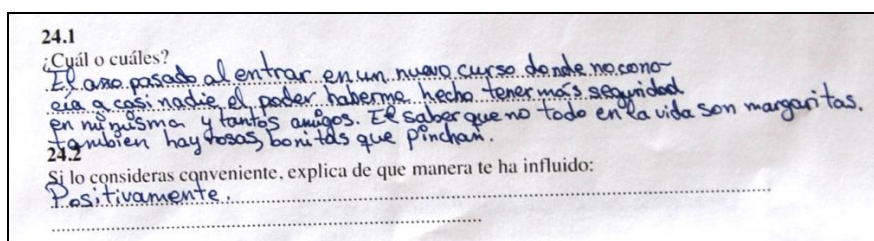 24.1
¿Cuál o cuáles?
El año pasado al entrar en un nuevo curso donde no cono-
cia a casi nadie, el poder haberme hecho tener más seguridad
en mi misma y tantos amigos. El saber que no todo en la vida son margaritas.
tambien hay rosas, bonitas que pinchan.
24.2
Si lo consideras conveniente, explica de que manera te ha influido:
Positivamente.